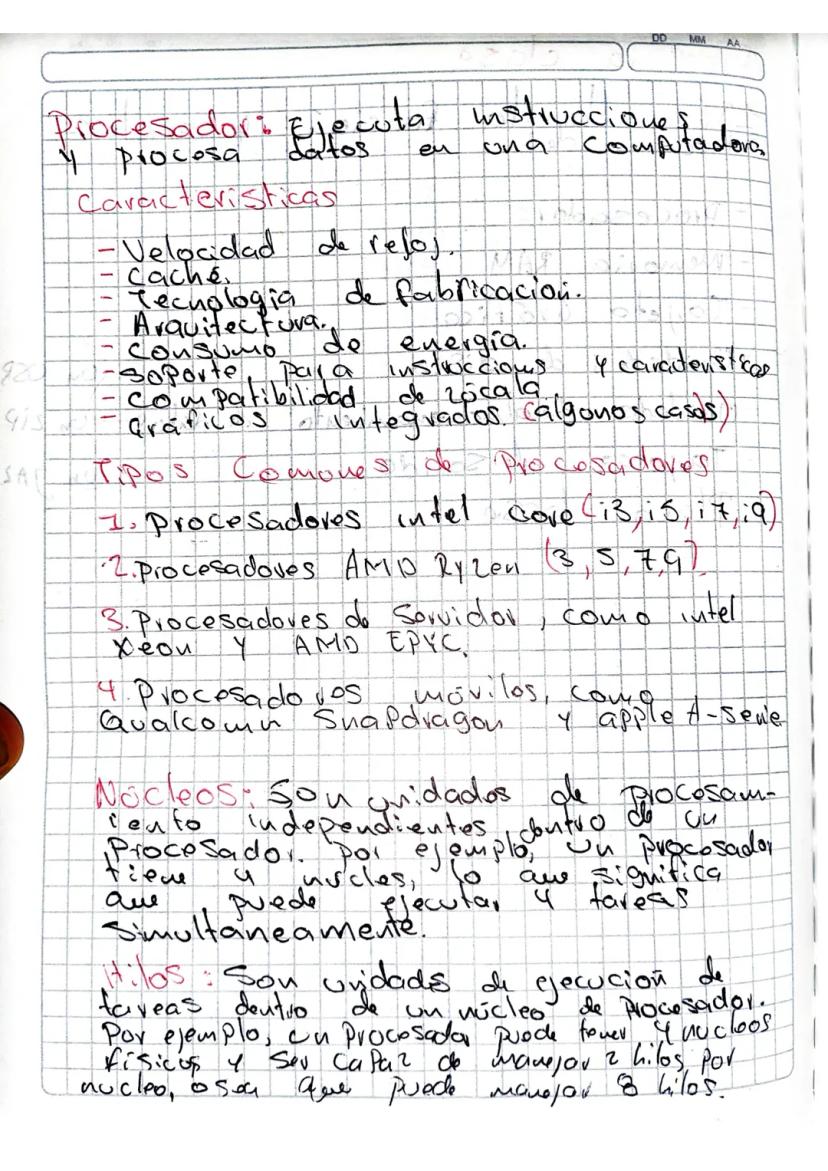 DD MM AA
Procesador: Ejecuta instrucciones
y procesa datos en una computadora
Características
- Velocidad de reloj.
- Caché.
- Tecnología de fabricación.
- Arquitectura.
- Consumo de energía.
- Soporte para instruccions y caracteristicas
- Compatibilidad de zócala
- Gráficos integrados. (algonos casos)
Tipos Comones de Procesadores
1. Procesadores intel core (i3, i5, i7, i9)
2. Procesadores AMD Ryzen (3, 5, 7, 9)
3. Procesadores de Servidor, como intel
Xeon y AMD EPYC.
4. Procesadores móviles, como
Qualcomn Snapdragon y apple A-serie
Núcleos: Son unidades de procesam-
iento independientes dentro de un
Procesador. por ejemplo, un procesador
tiene 4 nucles, lo que significa
que puede ejecutar 4 tareas
simultáneamente.
Hilos: Son unidads de ejecución de
tareas dentro de un núcleo de procesador.
Por ejemplo, un procesador puede tener 4 nucleos
físicos y ser capaz de manejar 2 hilos por
nucleo, o sea que puede manejar 8 hilos.